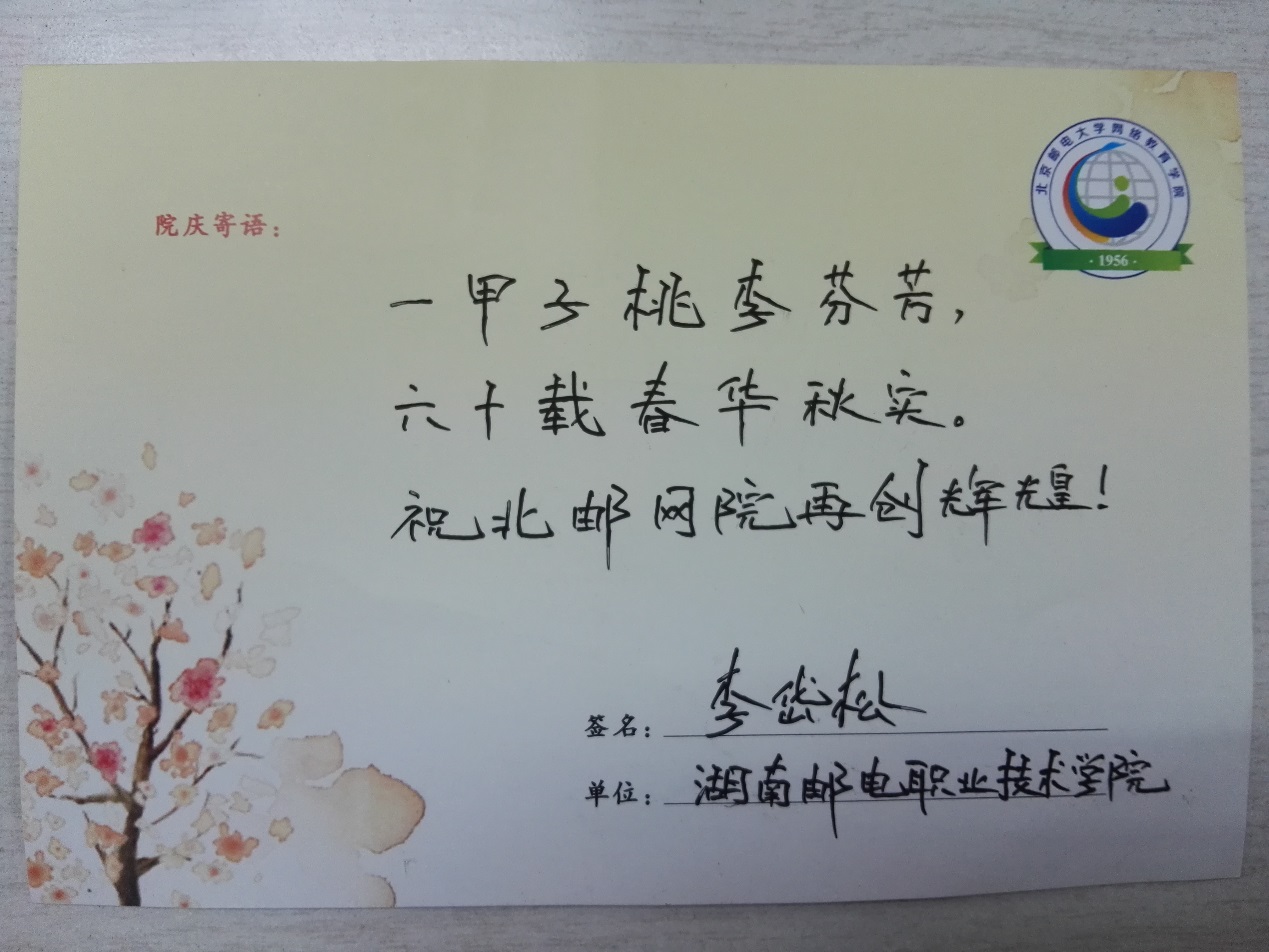 北京邮电大学网络教育学院
·1956·
院庆寄语：
一甲子桃李芬芳，
六十载春华秋实。
祝北邮网院再创辉煌！
签名：李岱松
单位：湖南邮电职业技术学院